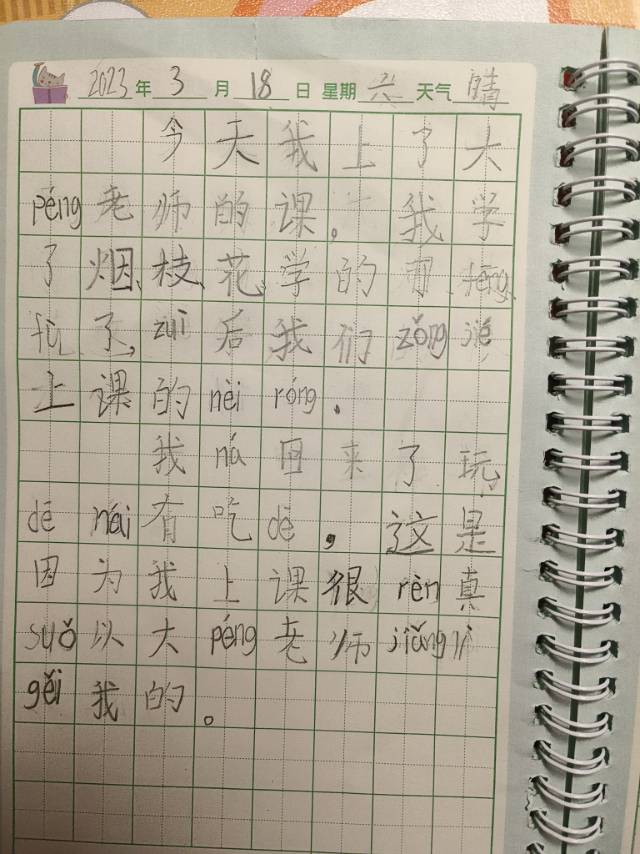 2023年3月18日 星期六 天气晴
今天我上了大
péng老师的课。我学
了烟、枝、花、学的
fú了,zuì后我们zǒng jié
上课的nèi róng.
我ná回来了玩
dē hái有吃dē，这是
因为我上课很rèn真
suǒ以大péng老师jiǎng lì
gěi我的。